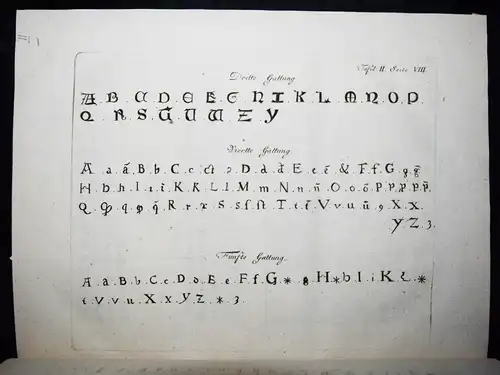 Tafel II. Seite VIII.
Dritte Gattung
A. B. C. D. E. E. G. H. I. K. L. M. N. O. P.
Q. R. S. T. U. W. Z. Y
Vierte Gattung.
A. a. ã. B. b. C. c. ct. D. d. E. e. ẽ. &. F. f. G. g. g̃
H. b. h. I. i. ĩ. K. L. l. M. m. N. n. ñ. O. o. õ. P. p.
Q. q. R. r. S. s. ſ. ſt. T. t. V. v. u. ũ. 9. X. x.
Y Z. 3.
Fünfte Gattung.
A. a. B. b. C. c. D. d. E. e. F. f. G * g. H * b. I. i. K *
t. V. v. u. X. x. Y. Z. * 3.